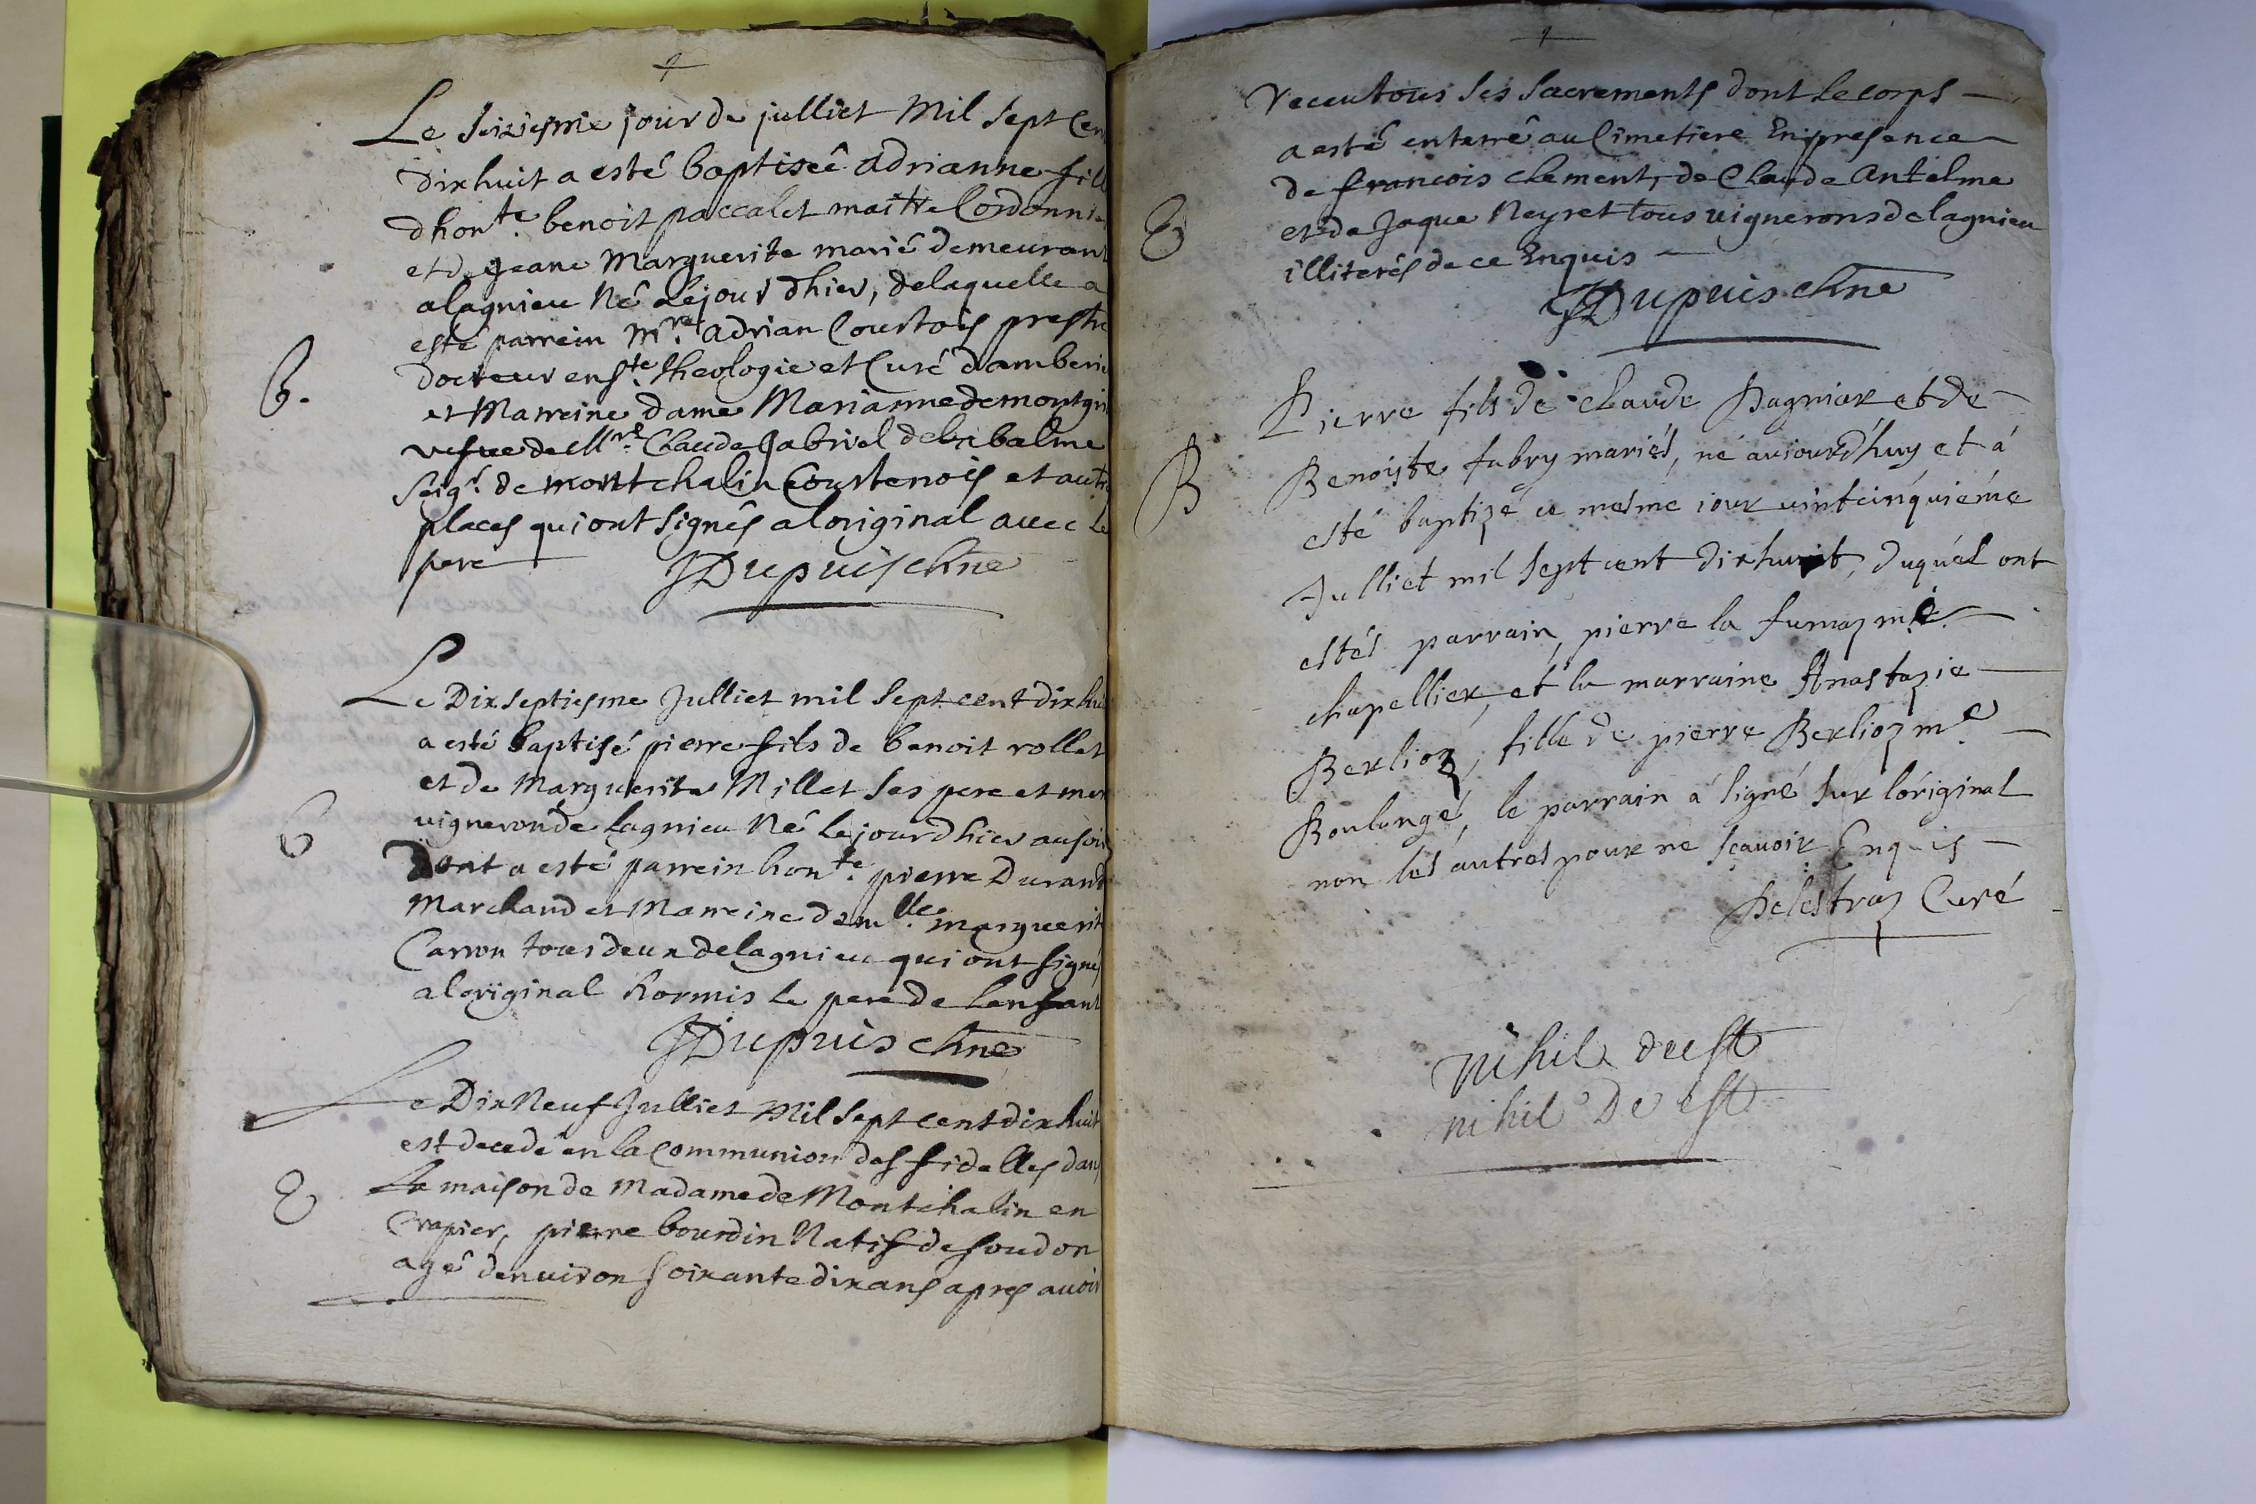 Le seiziesme jour de julliet Mil sept cen
dixhuit a esté baptiseê adrianne fill
dhon.te benoit paccalet maitre Cordonnie
et de jeane Marguerite marié demeurant
a lagnieu Né le jour dhier, de laquelle a
esté parrein M.re adrian Courtois prestre
docteur en s.te theologie et Curé damberie
et Marreine dame Marianne de montgri
vefve de M.re Claude gabriel de la balme
seig.r de montchalin Courtenois et autre
places qui ont signés a loriginal avec le
pere
JDupuis chne
b.
Le Dixseptiesme Julliet mil sept cent dixhui
a esté baptisé pierre fils de benoit rollet
et de Marguerite Millet ses pere et mere
vigneron de lagnieu Né le jour dhier au soir
Dont a esté parrein hon.te pierre Durand
Marchand et Marreine dem.lle marguerit
Carron tous deux de lagnieu qui ont signe
a loriginal hormis le pere de lenfant
JDupuis chne
b
Le Dix Neuf Julliet Mil sept cent dixhuit
est decedé en la Communion des fidelles dans
la maison de Madame de Montchalin en
Crapier, pierre bourdin Natif de soudon
agé denviron soixante dix ans apres avoir
E
receu tous ses sacrements dont le corps
a esté enterré au Cimetiere En presence
de francois clement, de Claude Antelme
et de Jaque Neyret tous vignerons de lagnieu
illiterés de ce Enquis
JDupuis chne
E
Pierre fils de claude Pagnier et de
Benoiste fabry mariés, né aujourd'huy et á
esté baptizé ce mesme jour vintcinquiéme
Julliet mil sept cent dixhuit, duquél ont
estés parrain, pierre la fumaz m.e
chapellier, et la marraine Anastazie
Berlioz, fille de pierre Berlioz m.e
Boulangé, le parrain á signé sur l'óriginal
non les autres pour ne sçavoir Enquis
Delestraz Curé
B
nihil deest
nihil De est